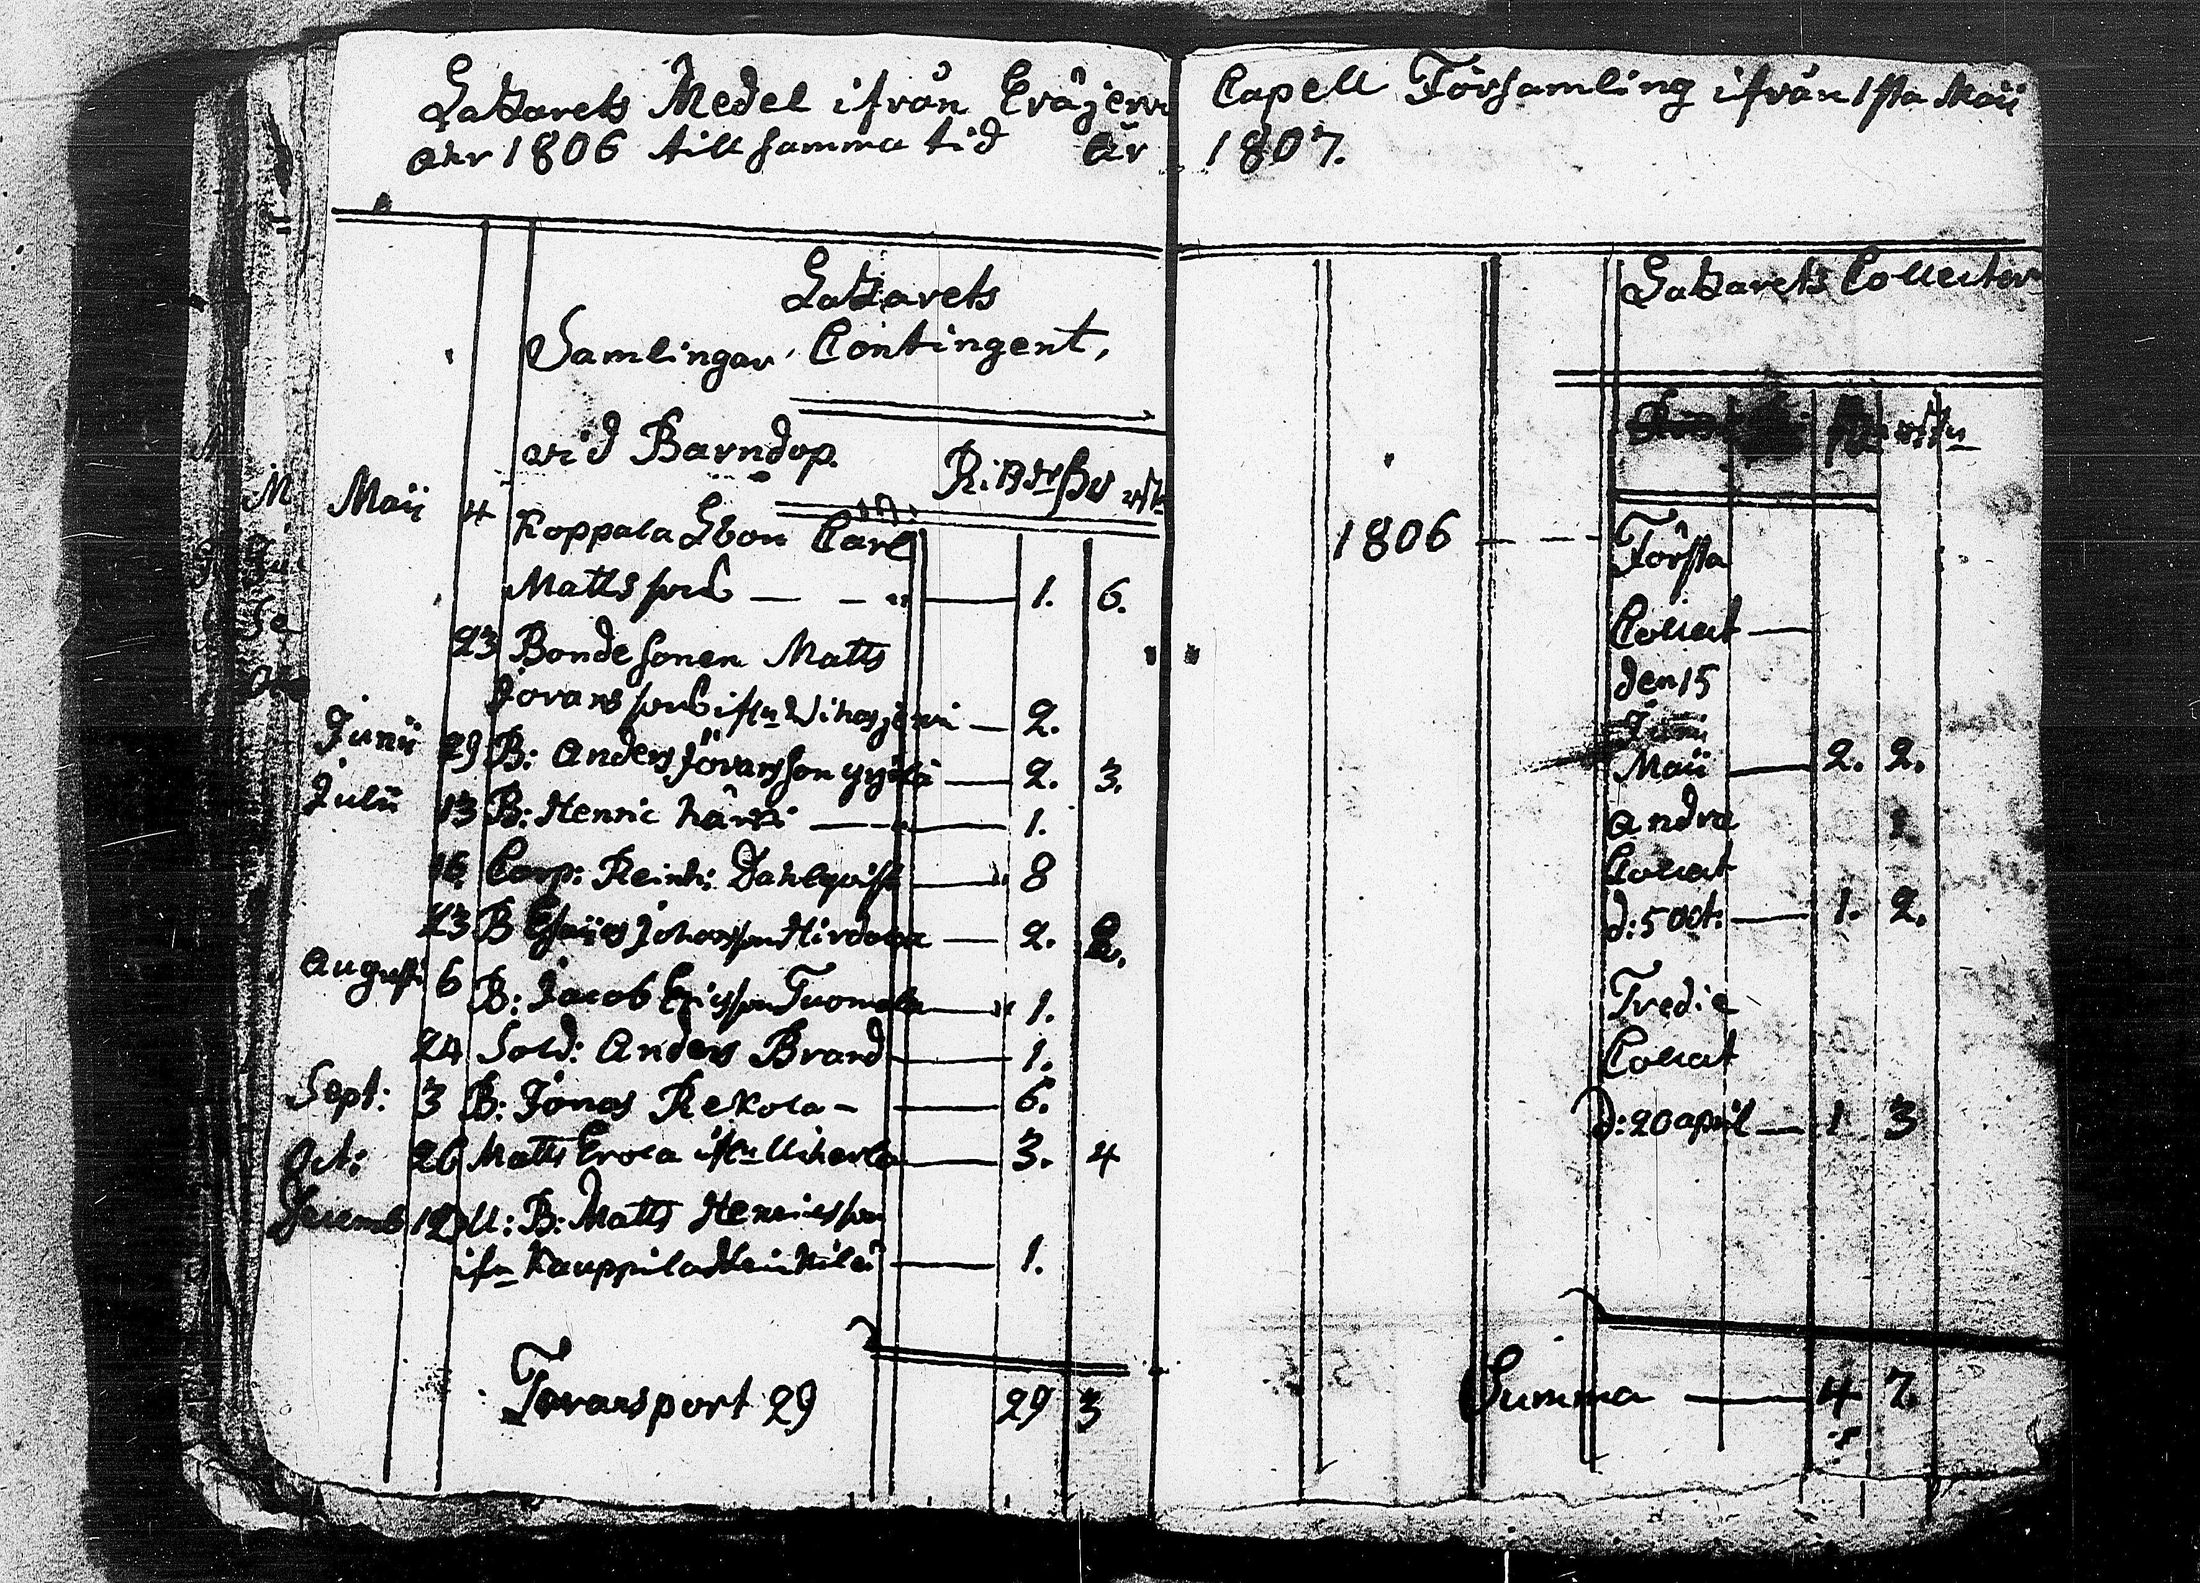 Latzarets Medel ifrån Eräjerv Capell Församling ifrån 1sta Maii
ahr 1806 till samma tid år 1807.
Latzarets
Samlingar Contingent,
vid Barndop. R:
Maii 4 Koppala Carl
Mattsson 1. 6.
23 Bonde sonen Matts
Jöransson ifrn Wihasjerwi 2.
Junii 29 B: Anders Jöransson 2. 3.
Julii 13 B: Henric 1.
16 Corp: Reinh: Dahlqvist 8
23 B Johansson Hirdola 2. 2.
Augusti 6 B: Jacob Ericsson Tuomela 1.
24 Sold: Anders Brand 1.
Sept: 3 B: Jonas Rekola - 6.
Oct: 26 Matts Erola ifrn Uiherla 3. 4
Decemb 12 U: B: Matts Henricsson
ifrn Kauppila Heikkilä 1.
Transport 29 29 3
Latzarets Collecter
1806 Första
Collect
den 15
Juni
Maii 2. 2.
Andra
Collect
d: 5 Oct: 1. 2.
Tredie
Collect
d: 20 april 1 3
Summa 4 7.